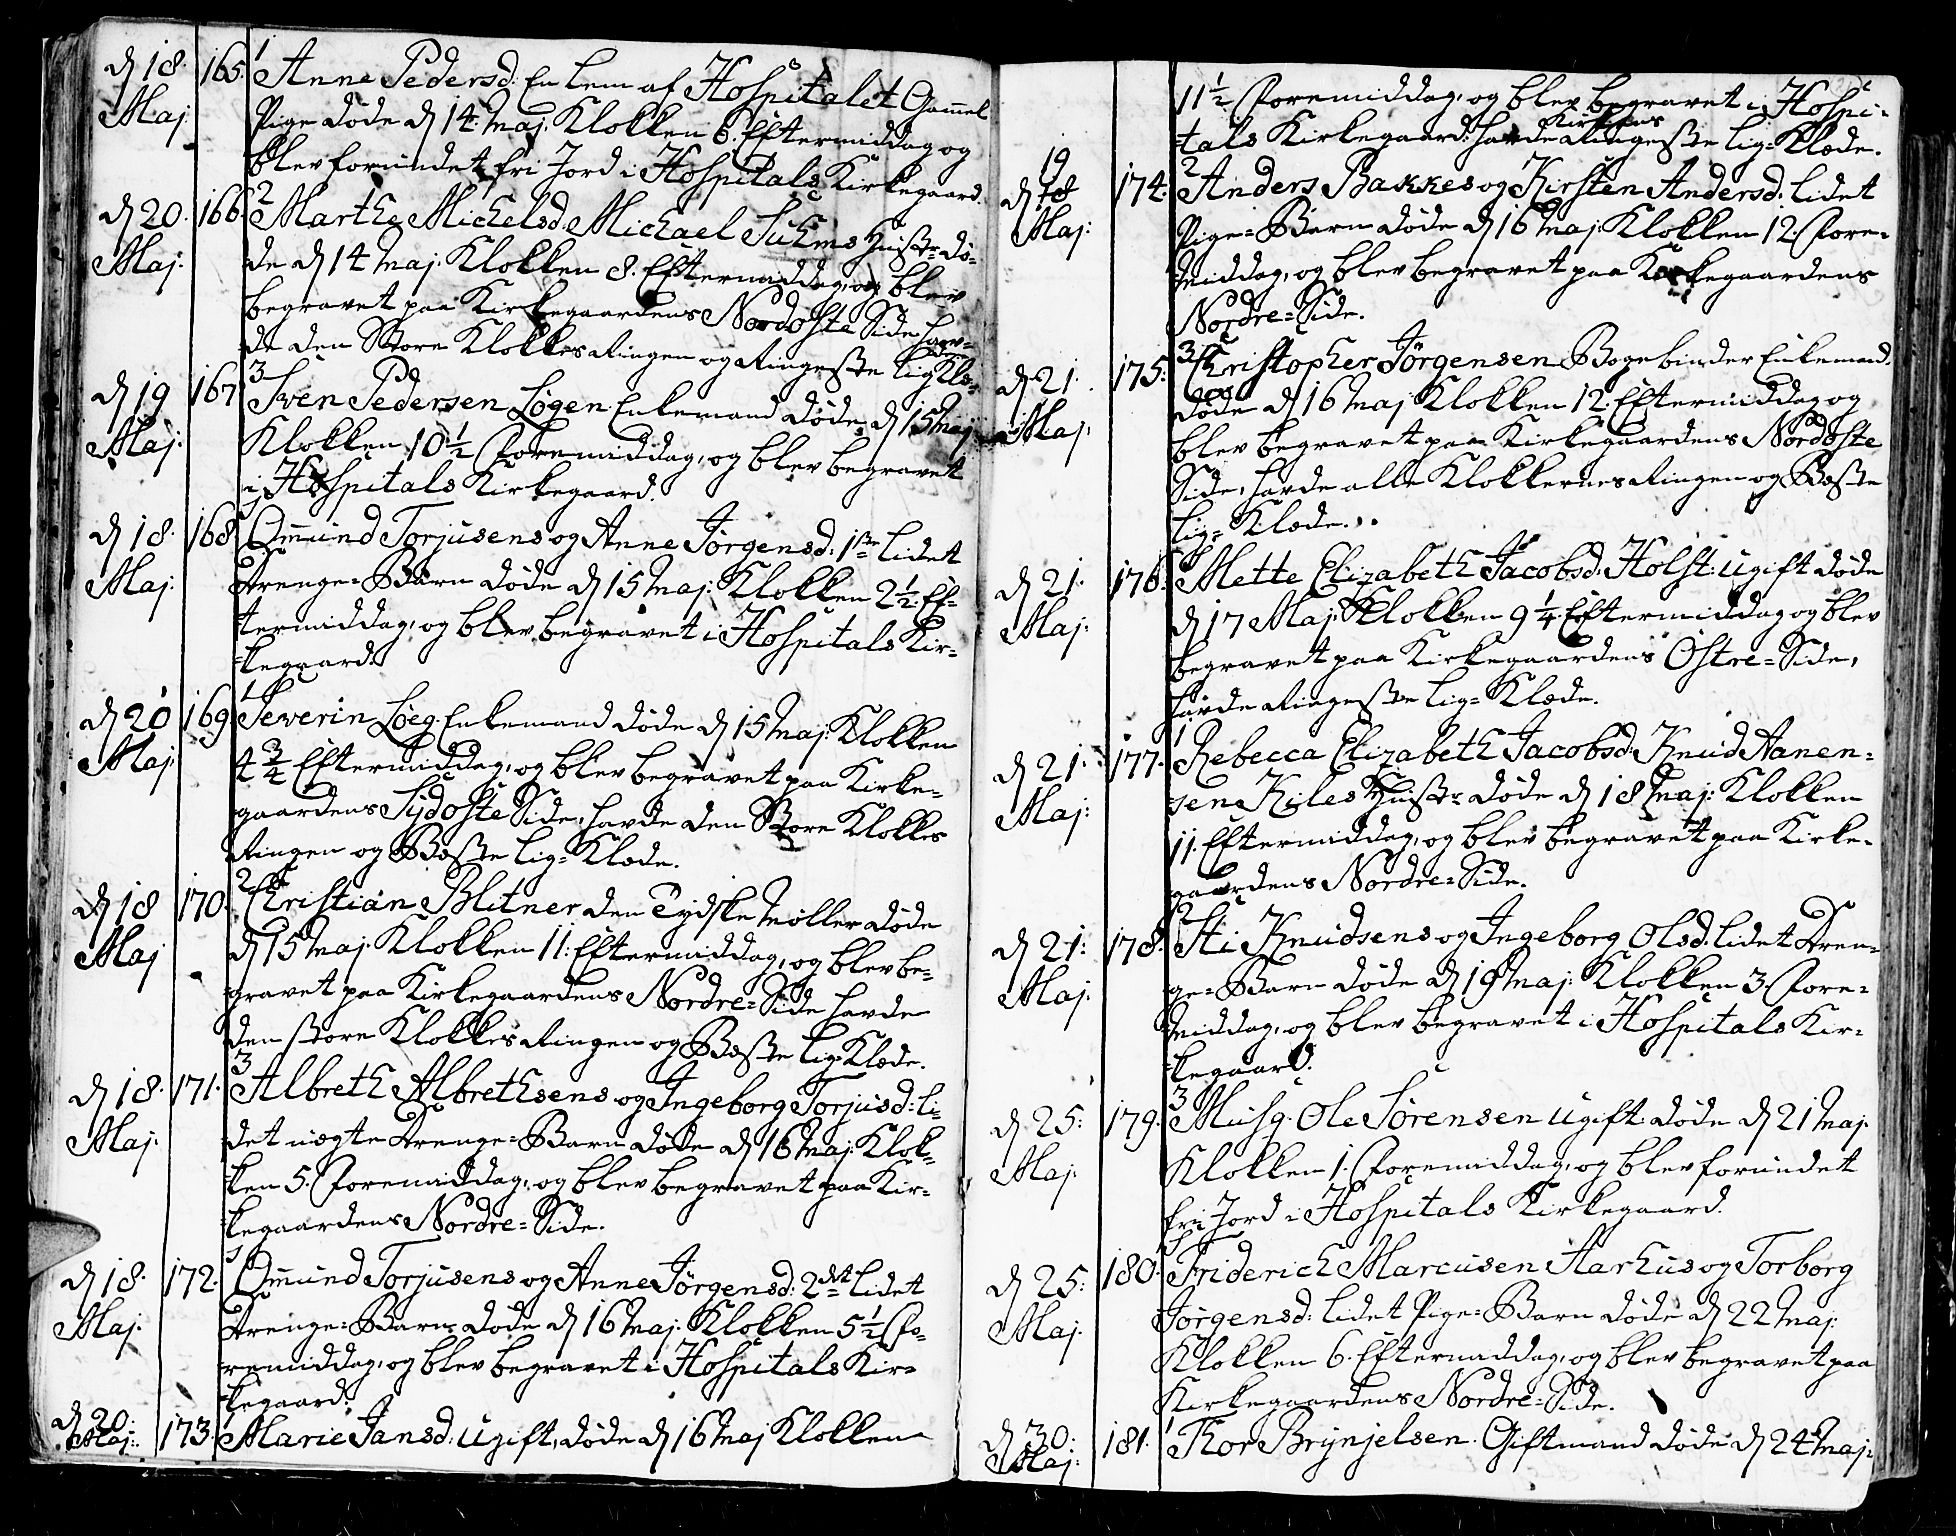 d 18. 165. 1 Anne Pedersd: En Lem af Hospitalet Gam̄el
Maj Pige døde d 14 Maj: Klokken 6. Eftermiddag og
blev forundet fri Jord i Hospitals Kirkegaard.
d 20. 166. 2 Marthe Michelsd: Michael Suhms Hustr: dø-
Maj: de d 14 Maj: Klokken 8. Eftermiddag, og blev
begravet paa Kirkegaardens Nordoste Side, hav-
de den Store Klokkes Ringen og Ringeste Lig Klæ-
de.
d 19 167. 3 Sven Pedersen Løgen Enkemand døde d 15 Maj
Maj: Klokken 10 1/2 Formiddag, og blev begravet
i Hospitals Kirkegaard.
d 18. 168. Om̄und Torjusens og Anne Jørgensd: 1ste Lidet
Maj: Drenge=Barn døde d 15 Maj: Klokken 2 1/2. Ef-
termiddag, og blev begravet i Hospitals Kir-
kegaard.
d 20 169. 1 Severin Løeg. Enkemand døde d 15 Maj: Klokken
Maj: 4 3/4 Eftermiddag, og blev begravet paa Kirke-
gaardens Sydoste Side, havde den Store Klokkes
Ringen og Beste Lig=Klæde.
d 18 170. 2 Christian Blitner den Tydske Møller døde
Maj d 15 Maj: Klokken 11. Eftermiddag, og blev be-
gravet paa Kirkegaardens Nordre=Side havde
den store Klokkes Ringen og Beste Lig=Klæde.
d 18. 171. 3 Albreth Albrethsens og Ingeborg Torjusd: Li-
Maj: det uægte Drenge=Barn døde d 16 Maj: Klok-
ken 5. Foremiddag, og blev begravet paa Kir-
kegaardens Nordre=Side.
d 18. 172. Om̄und Torjusens og Anne Jørgensd: 2det Lidet
Maj: Drenge=Barn døde d 16 Maj: Klokken 5 1/2 Fo-
remiddag, og blev begravet i Hospitals Kir-
kegaard.
d 20. 173. 1 Marie Jansd: Ugift, døde d 16 Maj Klokken
Maj:
11 1/2 Foremiddag, og blev begravet i Hospi-
Kirkens
tals Kirkegaard: havde Ringeste Lig=Klæde.
19
d 18 174. 2 Anders Bakkes og Kirsten Andersd: Lidet
Maj: Pige=Barn døde d 16 Maj: Klokken 12. Fore-
middag, og blev begravet paa Kirkegaardens
Nordre=Side.
d 21. 175. 3 Christopher Jørgensen Bogebinder Enkemand
Maj: døde d 16 Maj Klokken 12. Eftermiddag og
blev begravet paa Kirkegaardens Nordoste
Side, havde alle Klokkernes Ringen og Beste
Lig=Klæde.
d 21. 176. Mette Elizabeth Jacobsd: Holst: Ugift døde
Maj: d 17 Maj: Klokken 9 1/4 Eftermiddag og blev
begravet paa Kirkegaardens Østre=Side,
havde Ringeste Lig=Klæde.
d 21. 177. 1 Rebecca Elizabeth Jacobsd: Knud Aanen-
Maj: sen Kiles Hustr: døde d 18 Maj: Klokken
11. Eftermiddag, og blev begravet paa Kirke-
gaardens Nordre=Side.
d 21: 178. 2 Ati Knudsens og Ingeborg Olsd: Lidet Dren-
Maj: ge=Barn døde d 19 Maj: Klokken 3. Fore-
middag, og blev begravet i Hospitals Kir-
kegaard.
d 25: 179. 3 Musq. Ole Sørensen Ugift døde d 21 Maj.
Maj: Klokken 1. Foremiddag, og blev forundet
fri Jord i Hospitals Kirkegaard.
d 25: 180. Friderich Marcusen Aarhus og Torborg
Maj: Jørgensd: Lidet Pige=Barn døde d 22 Maj:
Klokken 6. Eftermiddag, og blev begravet paa
Kirkegaardens Nordre=Side.
d 30: 181. 1 Thor Brynjelsen. Giftmand døde d 24 Maj:
Maj: